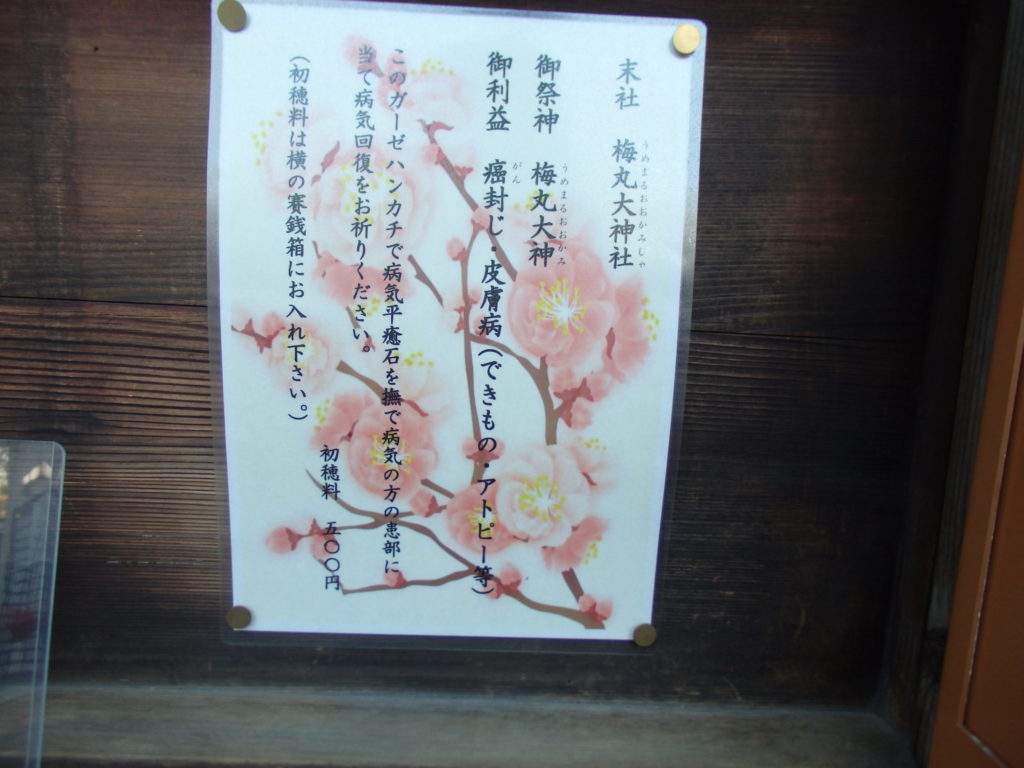 末社 梅丸大神社
うめまるおおかみしゃ
御祭神 梅丸大神
うめまるおおかみ
御利益 癌封じ・皮膚病(できもの・アトピー等)
がん
このガーゼハンカチで病気平癒石を撫で病気の方の患部に
当て病気回復をお祈りください。
初穂料 五〇〇円
(初穂料は横の賽銭箱にお入れ下さい。)